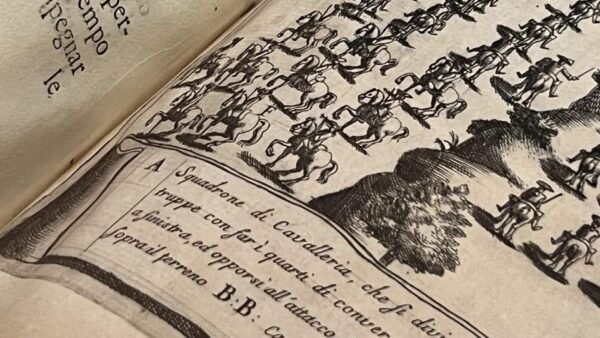 per-
tempo
pegnar
le,
A Squadrone di Cavalleria, che ſi divi
truppe con far i quarti di conver
a ſiniſtra, ed opporſi all'attacco
ſopra il terreno B.B: Ca